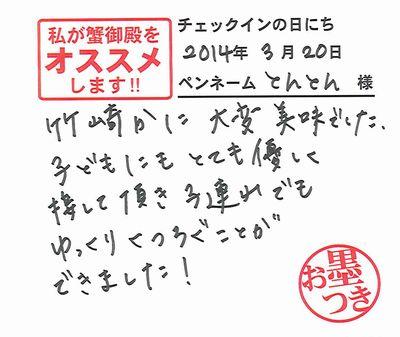 私が蟹御殿を
オススメ
します!!
チェックインの日にち
2014年 3月20日
ペンネーム とんとん 様
竹崎かに 大変美味でした、
子どもにも とても優しく
接して頂き子連れでも
ゆっくりくつろぐことが
できました!
お墨
つき